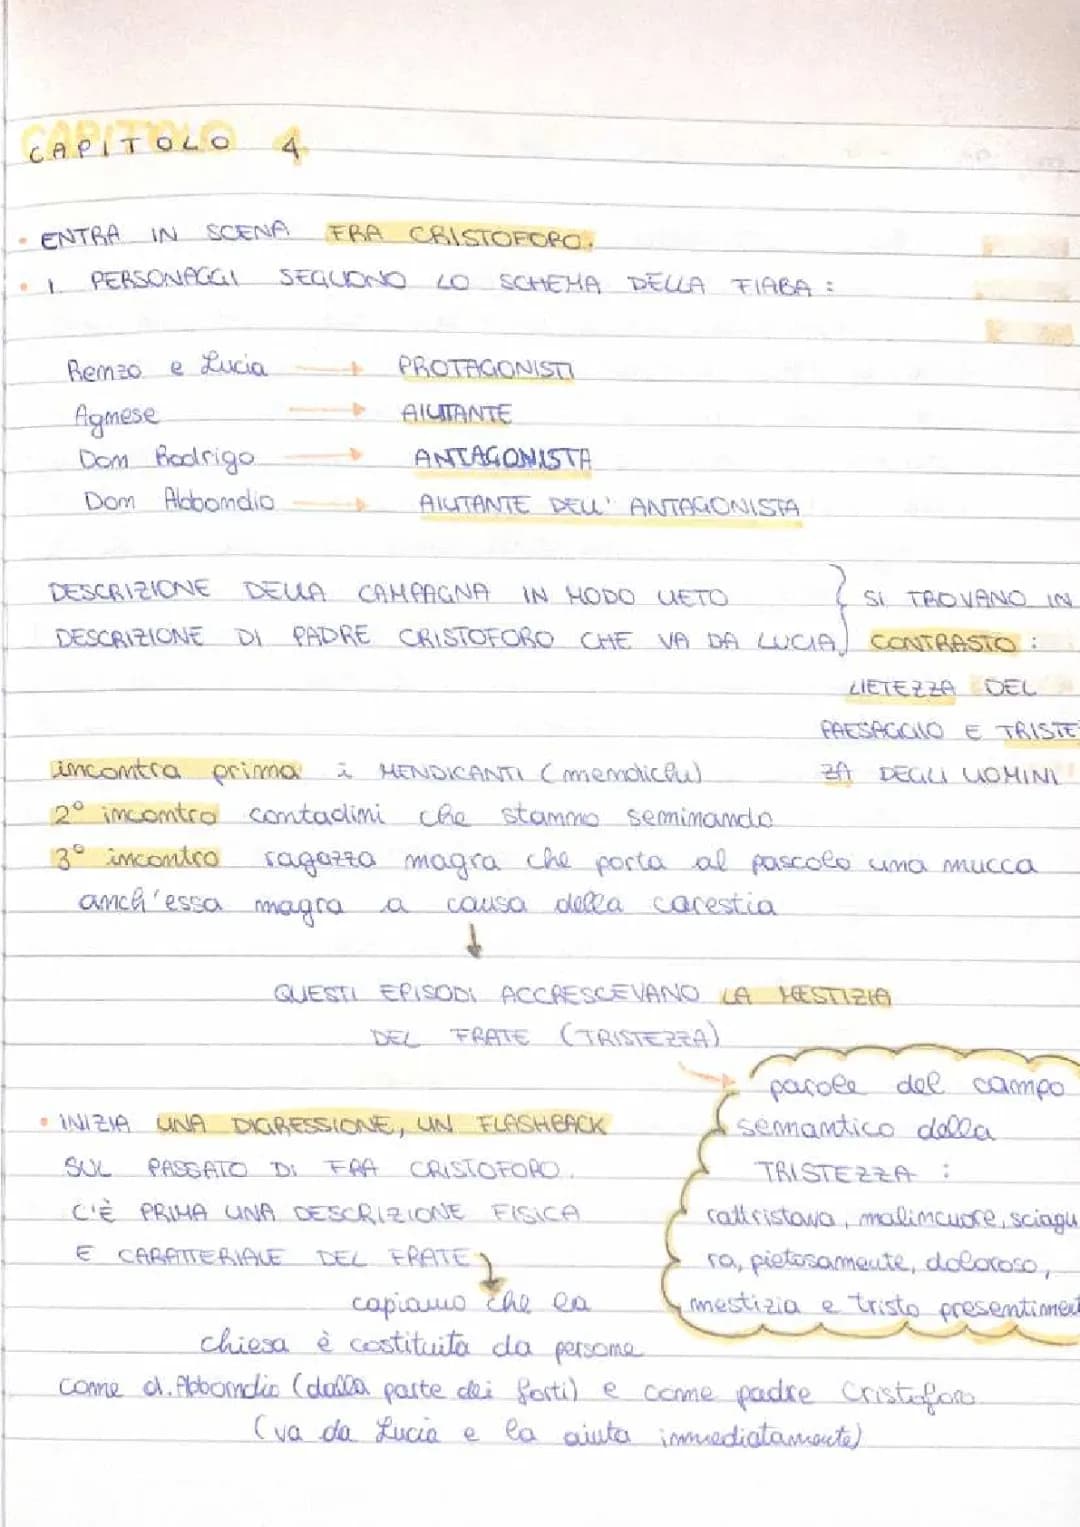 CAPITOLO 4
• ENTRA IN SCENA FRA CRISTOFORO.
• I PERSONAGGI SEGUONO LO SCHEMA DELLA FIABA :
Renzo e Lucia → PROTAGONISTI
Agnese → AIUTANTE
Don Rodrigo → ANTAGONISTA
Don Abbondio → AIUTANTE DELL' ANTAGONISTA
DESCRIZIONE DELLA CAMPAGNA IN MODO LIETO } SI TROVANO IN
DESCRIZIONE DI PADRE CRISTOFORO CHE VA DA LUCIA } CONTRASTO :
LIETEZZA DEL
PAESAGGIO E TRISTE
ZA DEGLI UOMINI
incontra prima i MENDICANTI (mendichi)
2° incontro contadini che stanno seminando
3° incontro ragazza magra che porta al pascolo una mucca
anch'essa magra a causa della carestia
↓
QUESTI EPISODI ACCRESCEVANO LA MESTIZIA
DEL FRATE (TRISTEZZA)
→ parole del campo
semantico della
TRISTEZZA :
rattristava, malincuore, sciagu
ra, pietosamente, doloroso,
mestizia e tristo presentiment
• INIZIA UNA DIGRESSIONE, UN FLASHBACK
SUL PASSATO DI FRA CRISTOFORO.
C'È PRIMA UNA DESCRIZIONE FISICA
E CARATTERIALE DEL FRATE
capiamo che la
chiesa è costituita da persone
come d. Abbondio (dalla parte dei forti) e come padre Cristoforo
(va da Lucia e la aiuta immediatamente)